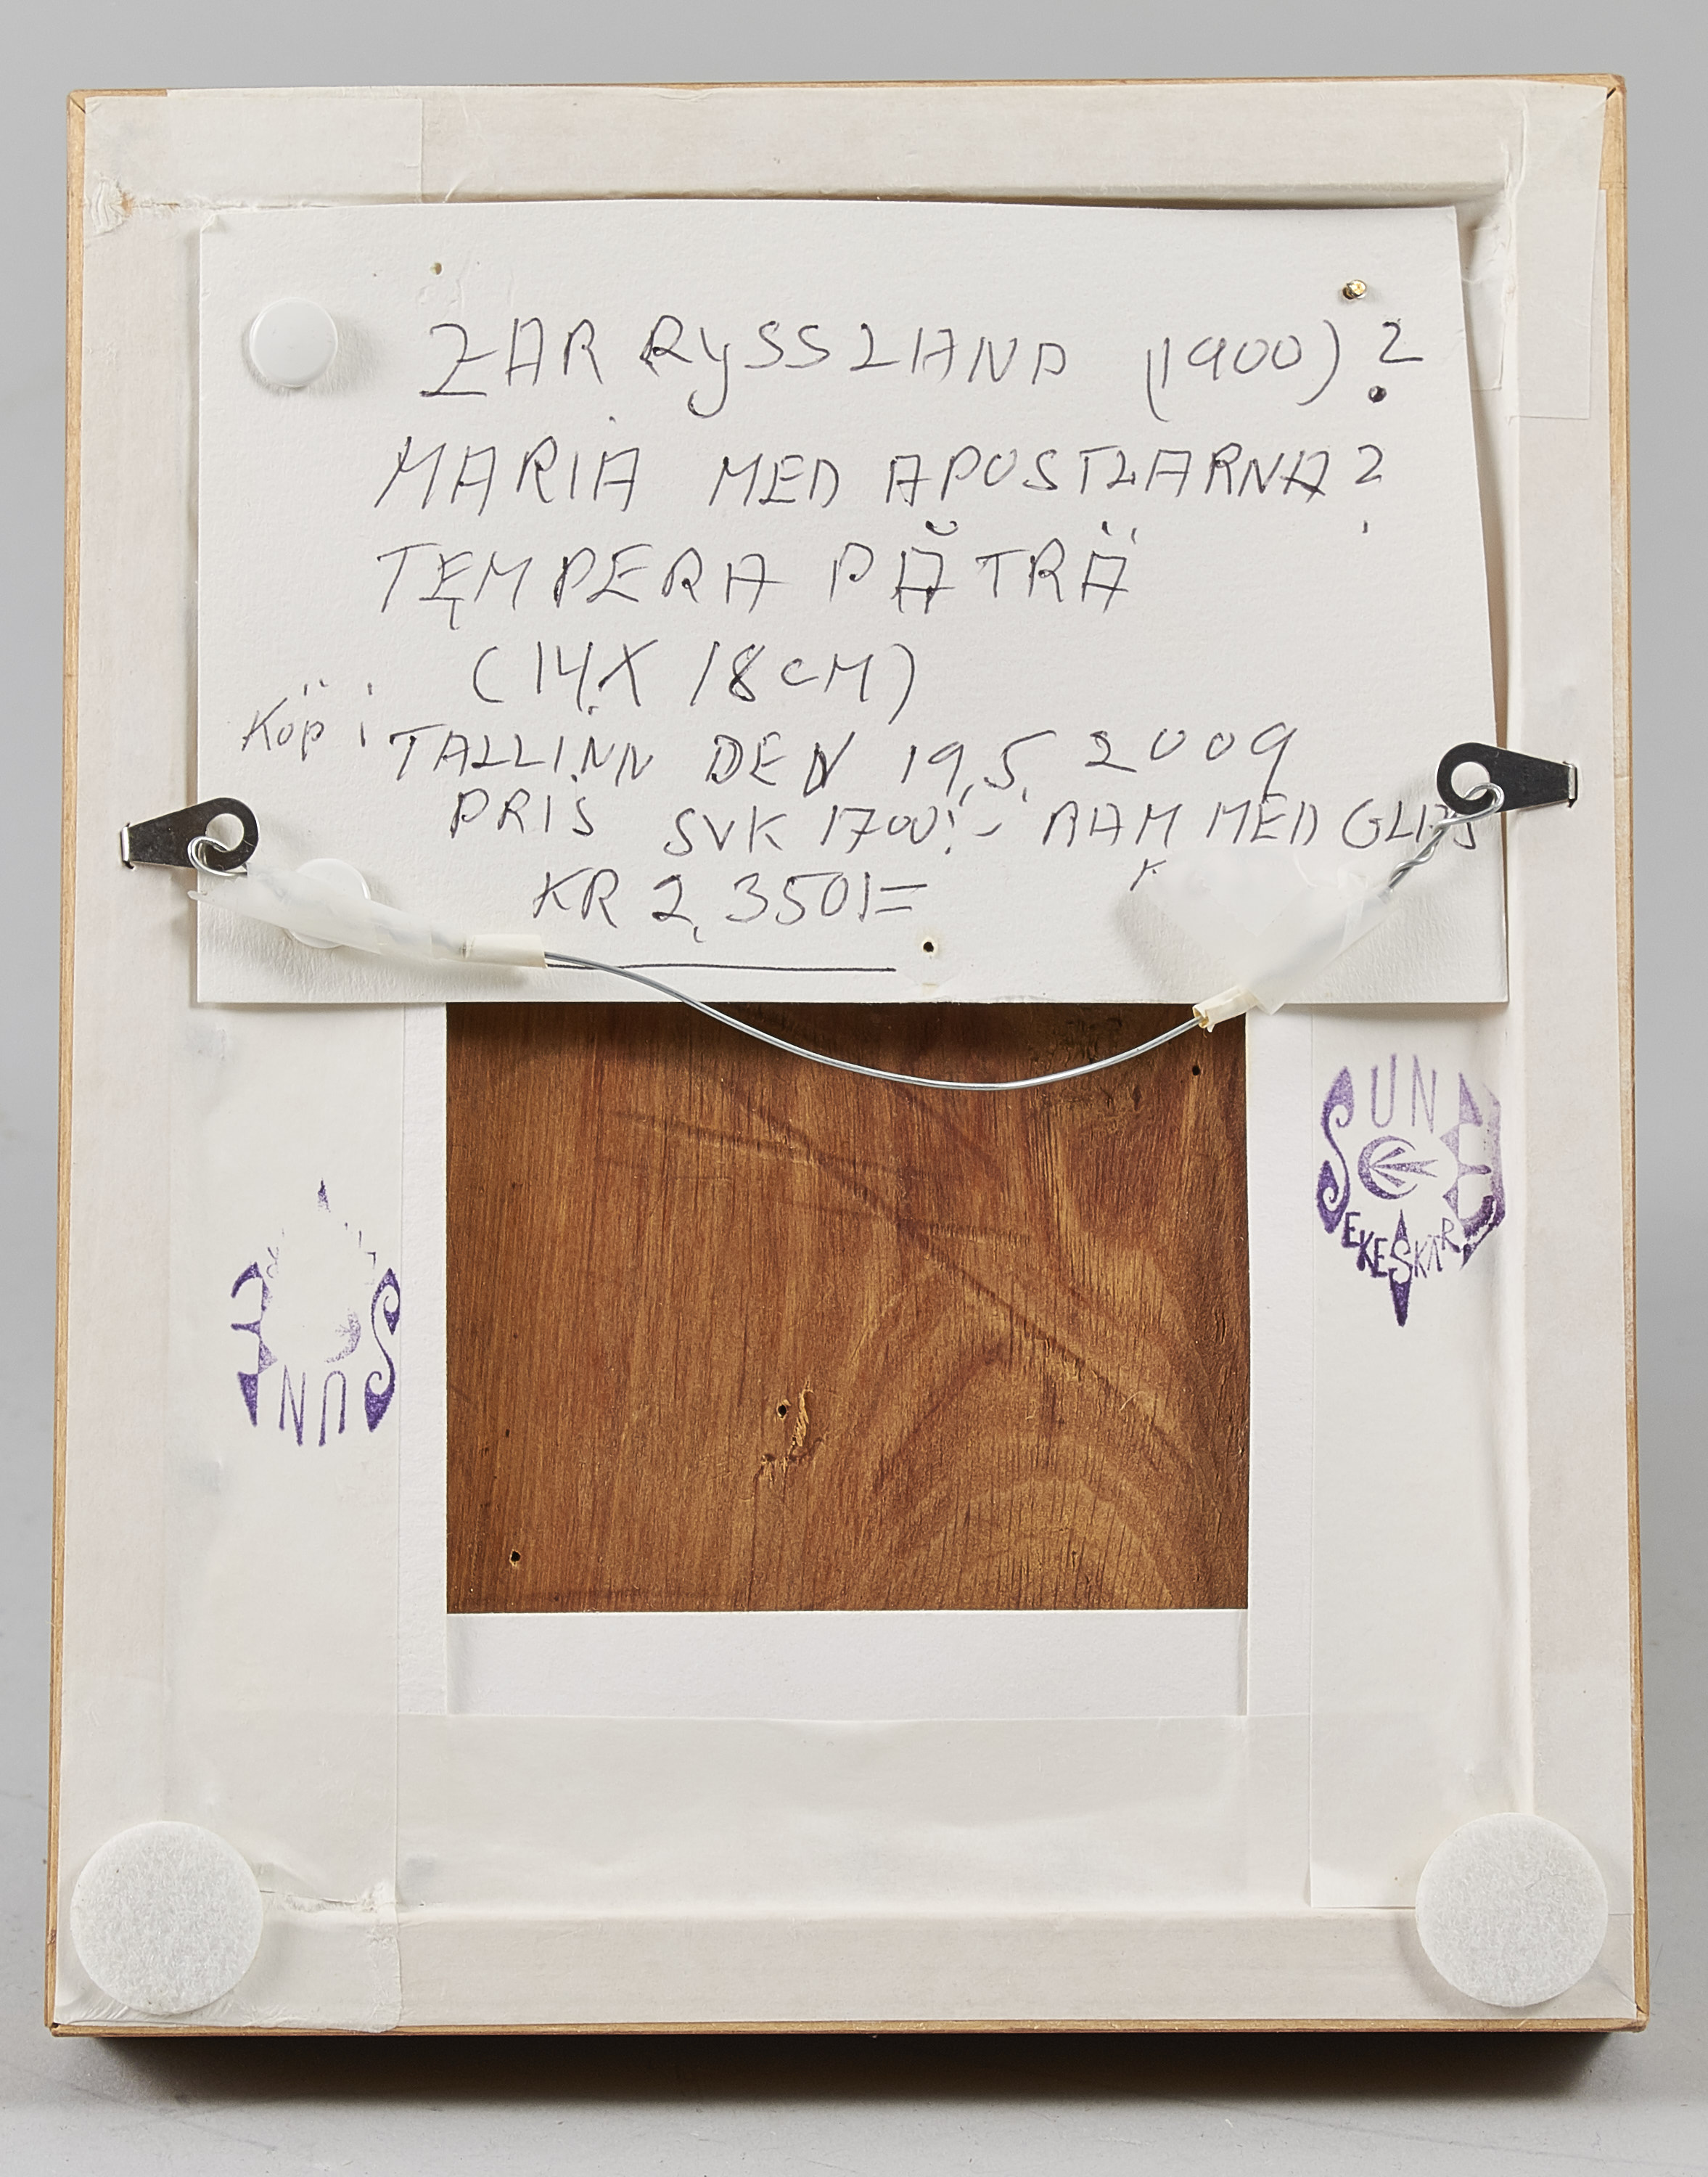 ZAR RySSLAND (1900)?
MARIA MED APOSTLARNA?
TEMPERA PÅ TRÄ
(14X 18CM)
Köp i TALLINN DEN 19,5, 2009
PRIS SVK 1700:- RAM MED GLAS
KR 2,350:=
SUNE
EKESKÄR
SUNE